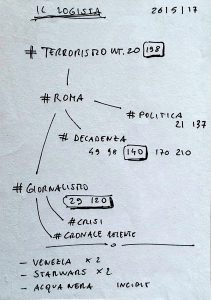 IL LOGISTA 26/5/17
# TERRORISMO INT. 20 198
# ROMA
# POLITICA
21 137
# DECADENZA
49 98 140 170 210
# GIORNALISMO
29 120
# CRISI
# CRONACA
— VENEZIA × 2
— STARWARS × 2
— ACQUA NERA